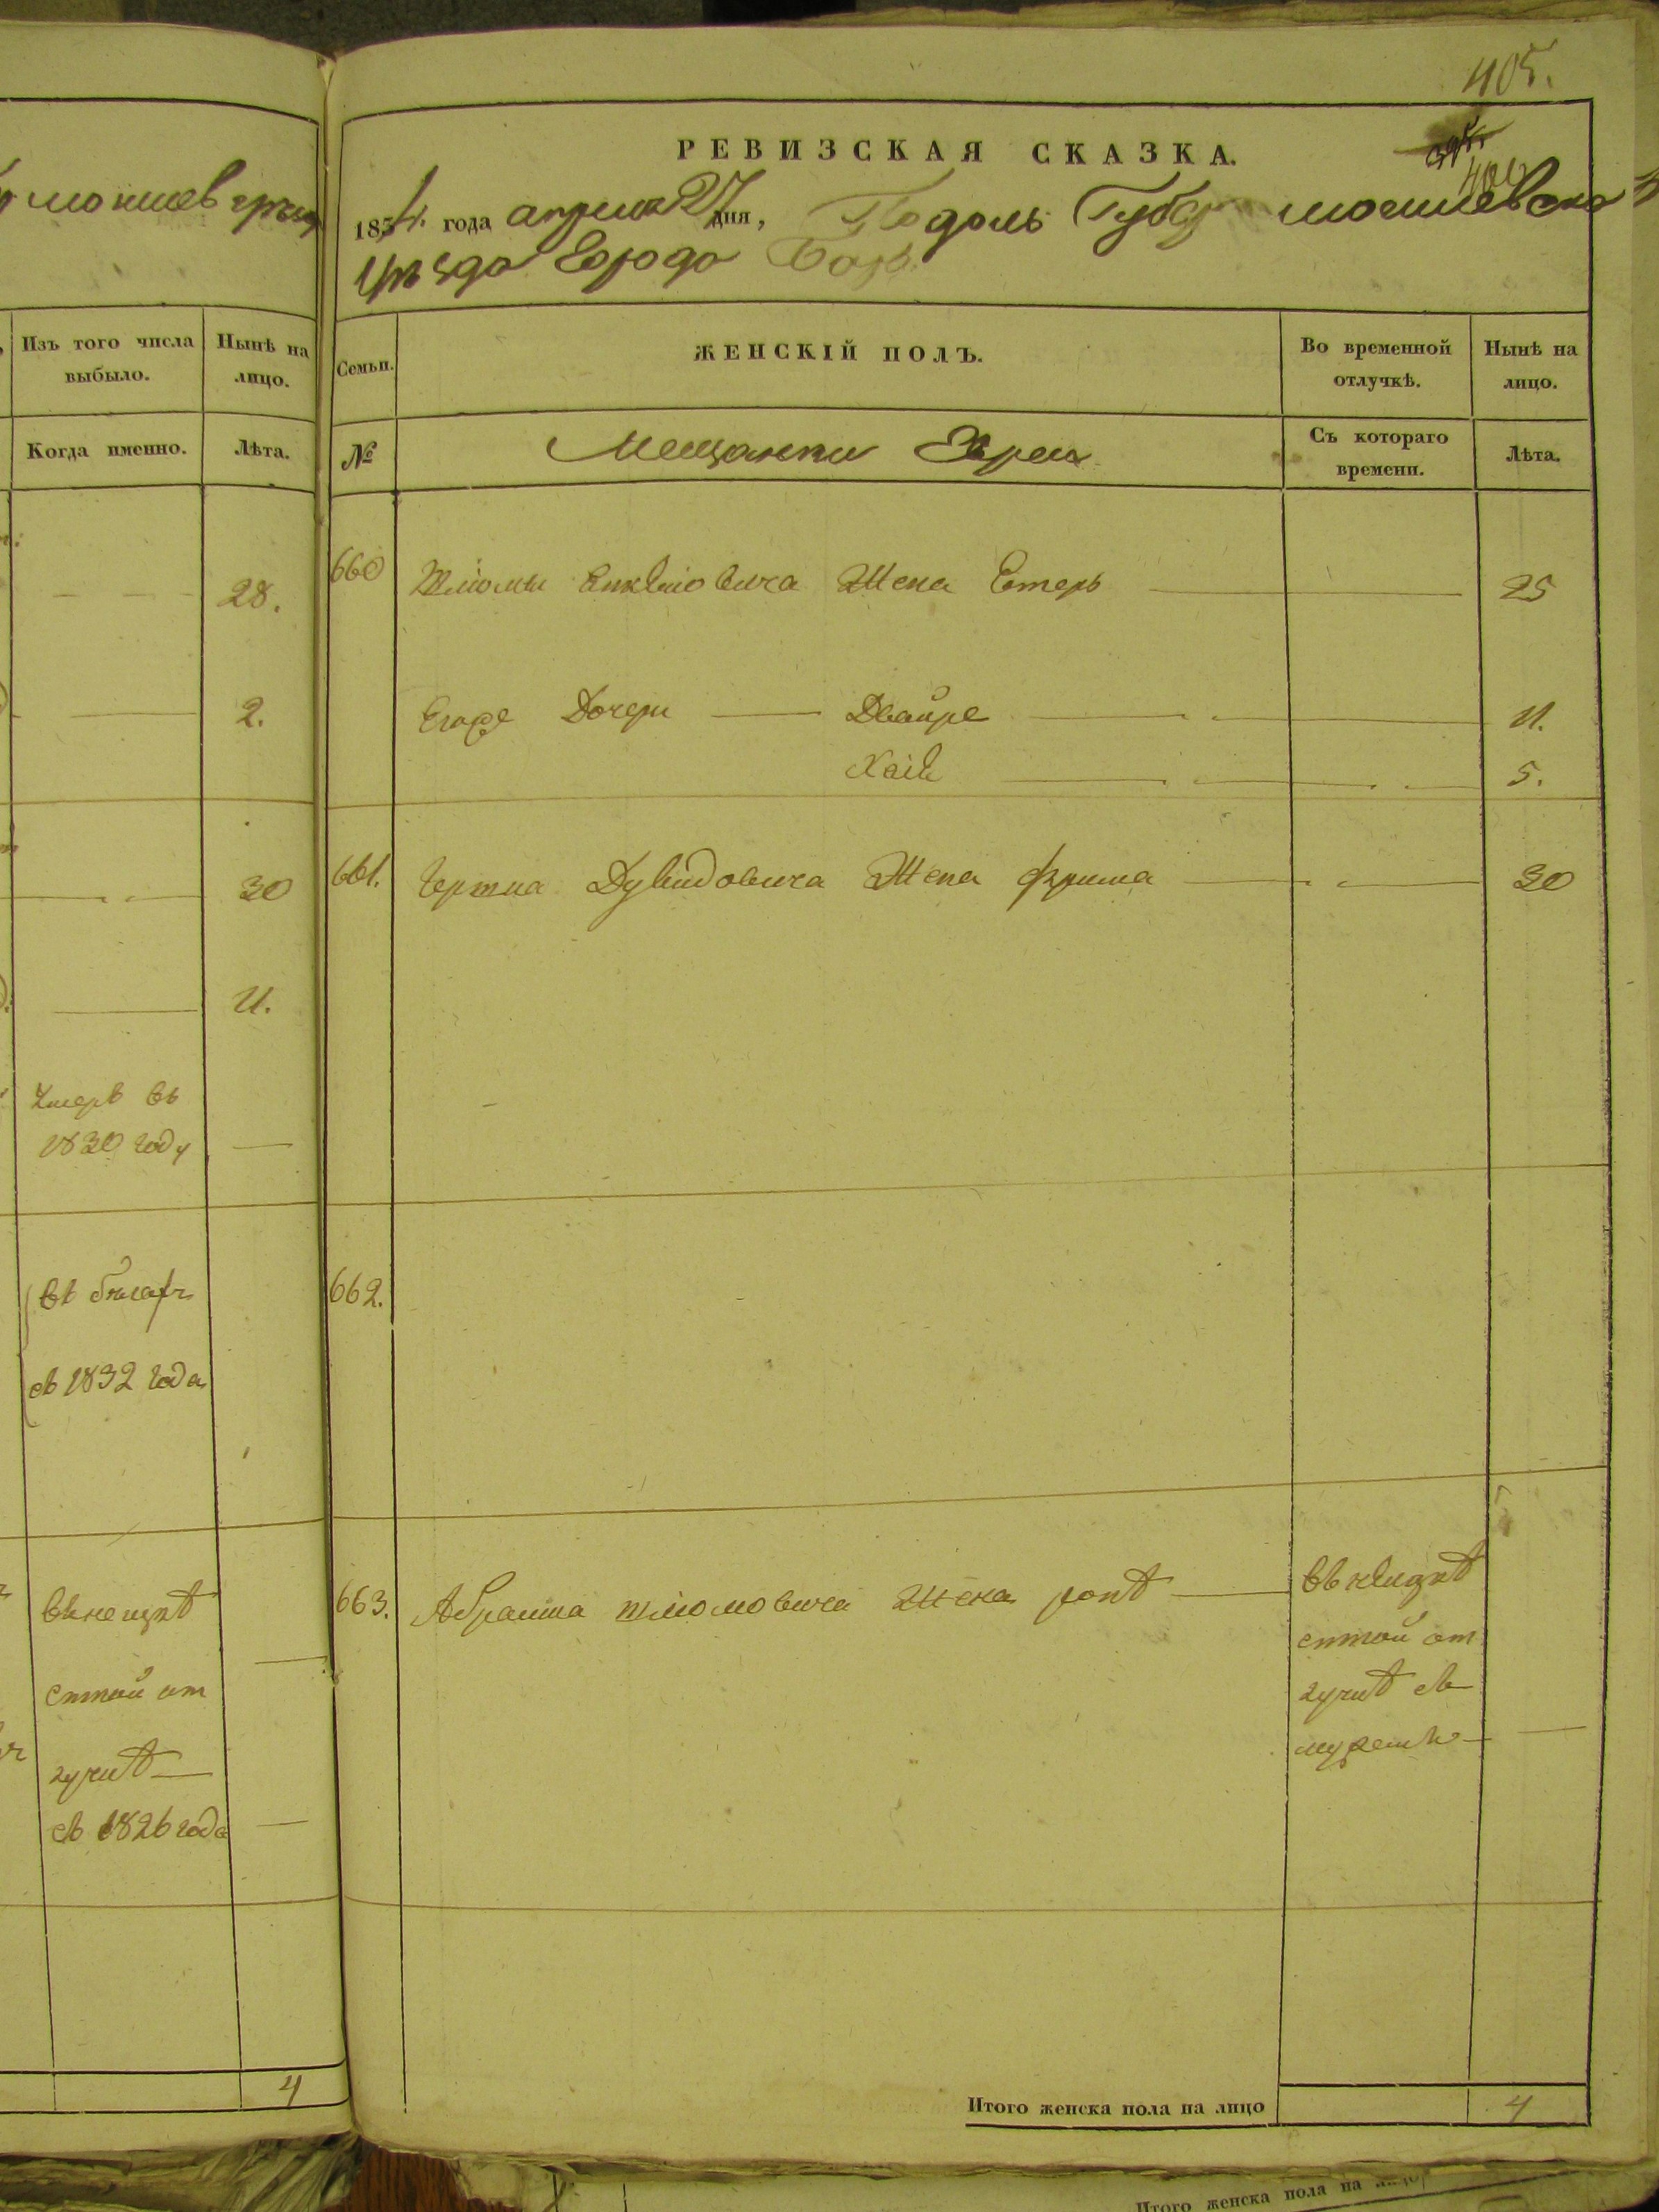 405.
РЕВИЗСКАЯ СКАЗКА.
395
406
1834 года апреля 27 дня, Подоль Губер могилевска
уезда города Бар
Изъ того числа выбыло.
Нынѣ на лицо.
Когда именно.
Лѣта.
28.
2.
30
11.
умеръ въ
1830 году
въ бѣгах
съ 1832 года
въ неизвѣ
стной от
лучкѣ
съ 1826 года
4
Семьи.
ЖЕНСКІЙ ПОЛЪ.
Во временной отлучкѣ.
Нынѣ на лицо.
№
Мещанки Евреи
Съ котораго времени.
Лѣта.
660 Шліомы Жена Естерь 25
Егоже Дочери Двойре 11.
Хаiя 5.
661. Гершка Дувидовича Жена Фрима 30
662.
663. Абрамка Шліомовича Жена въ неизвѣ
стной от
лучкѣ съ
мужемъ
Итого женска пола на лицо 4
Итого женска пола на лицо